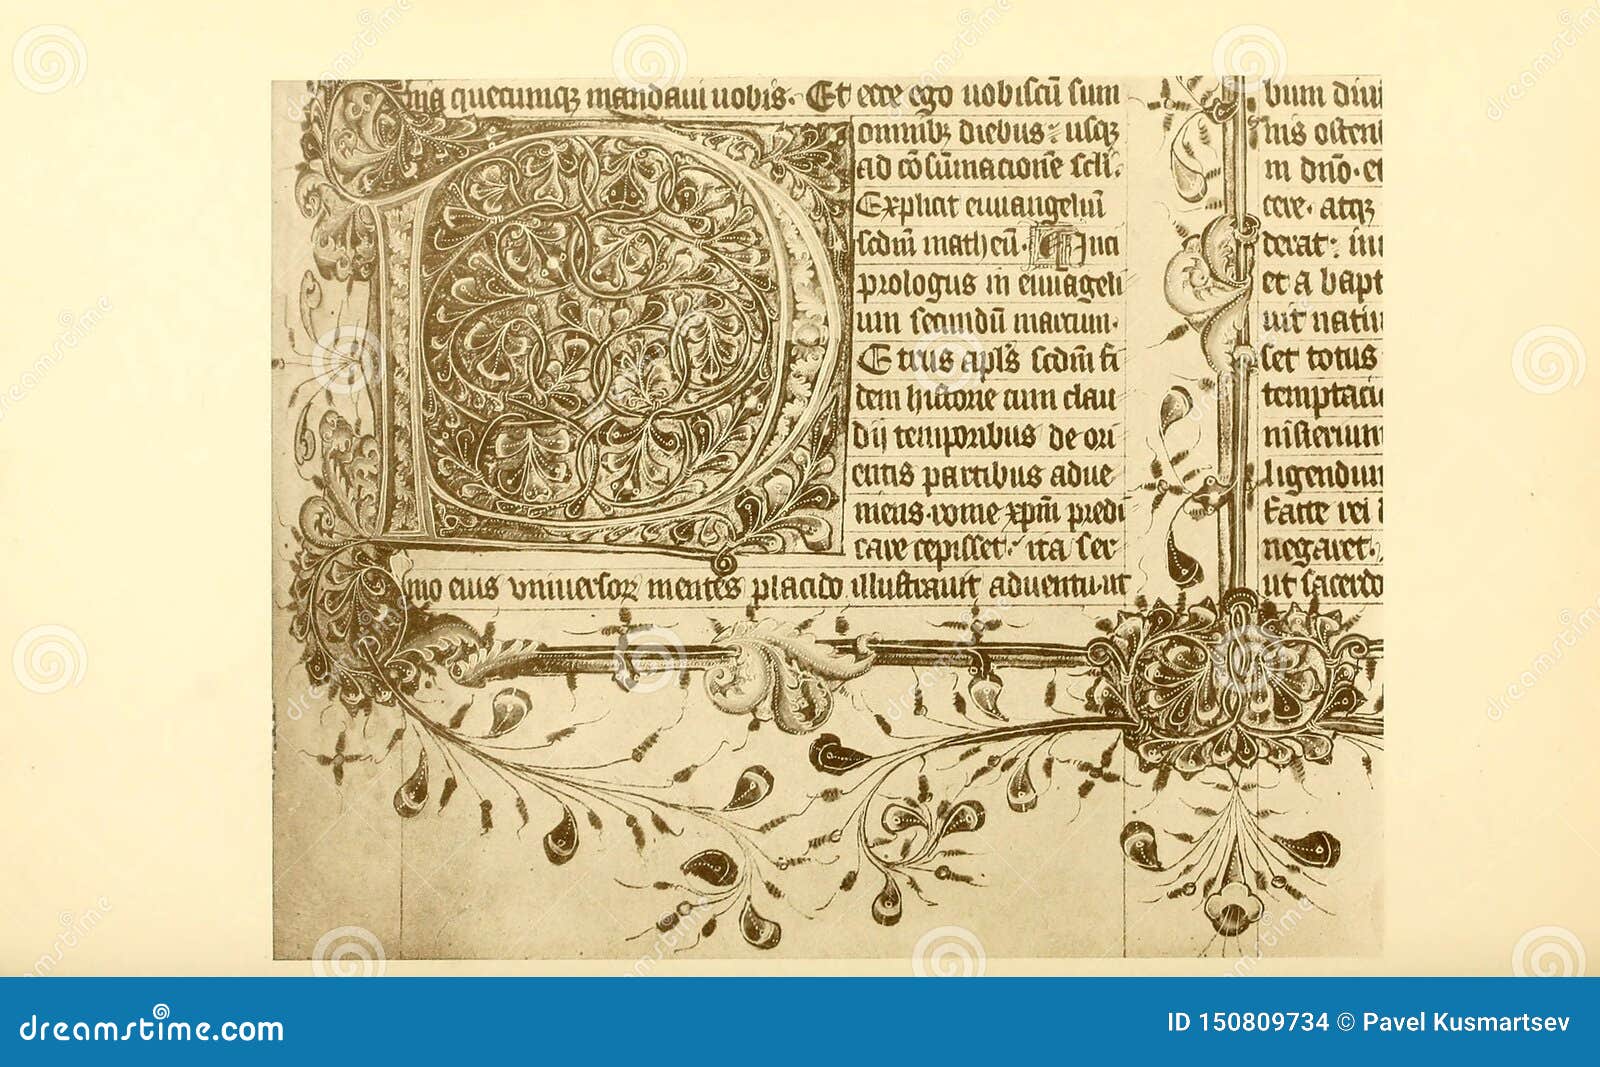 nia quecumqꝫ mandaui uobis. Et ecce ego uobiscū sum
omnibꝫ diebus: usqꝫ
ad cōsūmacionē scli.
Explicit euuangeliū
scdm̄ matheū. Inci
prologus in euuageli
um secundū marcum.
Etrus apl's scdm̄ fi
dem historie cum clau
dij temporibus de ori
entis partibus adue
niens rome xpm̄ predi
care cepisset: ita ser
mo eius vniuersoꝝ mentes placido illustrauit aduentu. ut
bum diui
nis osten
in dn̄o. et
cere. atqꝫ
derat: in
et a bapt
uit natiu
set totus
temptaciō
nisterium
ligendum
facte rei
negaret.
ut sacerdo
dreamstime.com
ID 150809734 © Pavel Kusmartsev